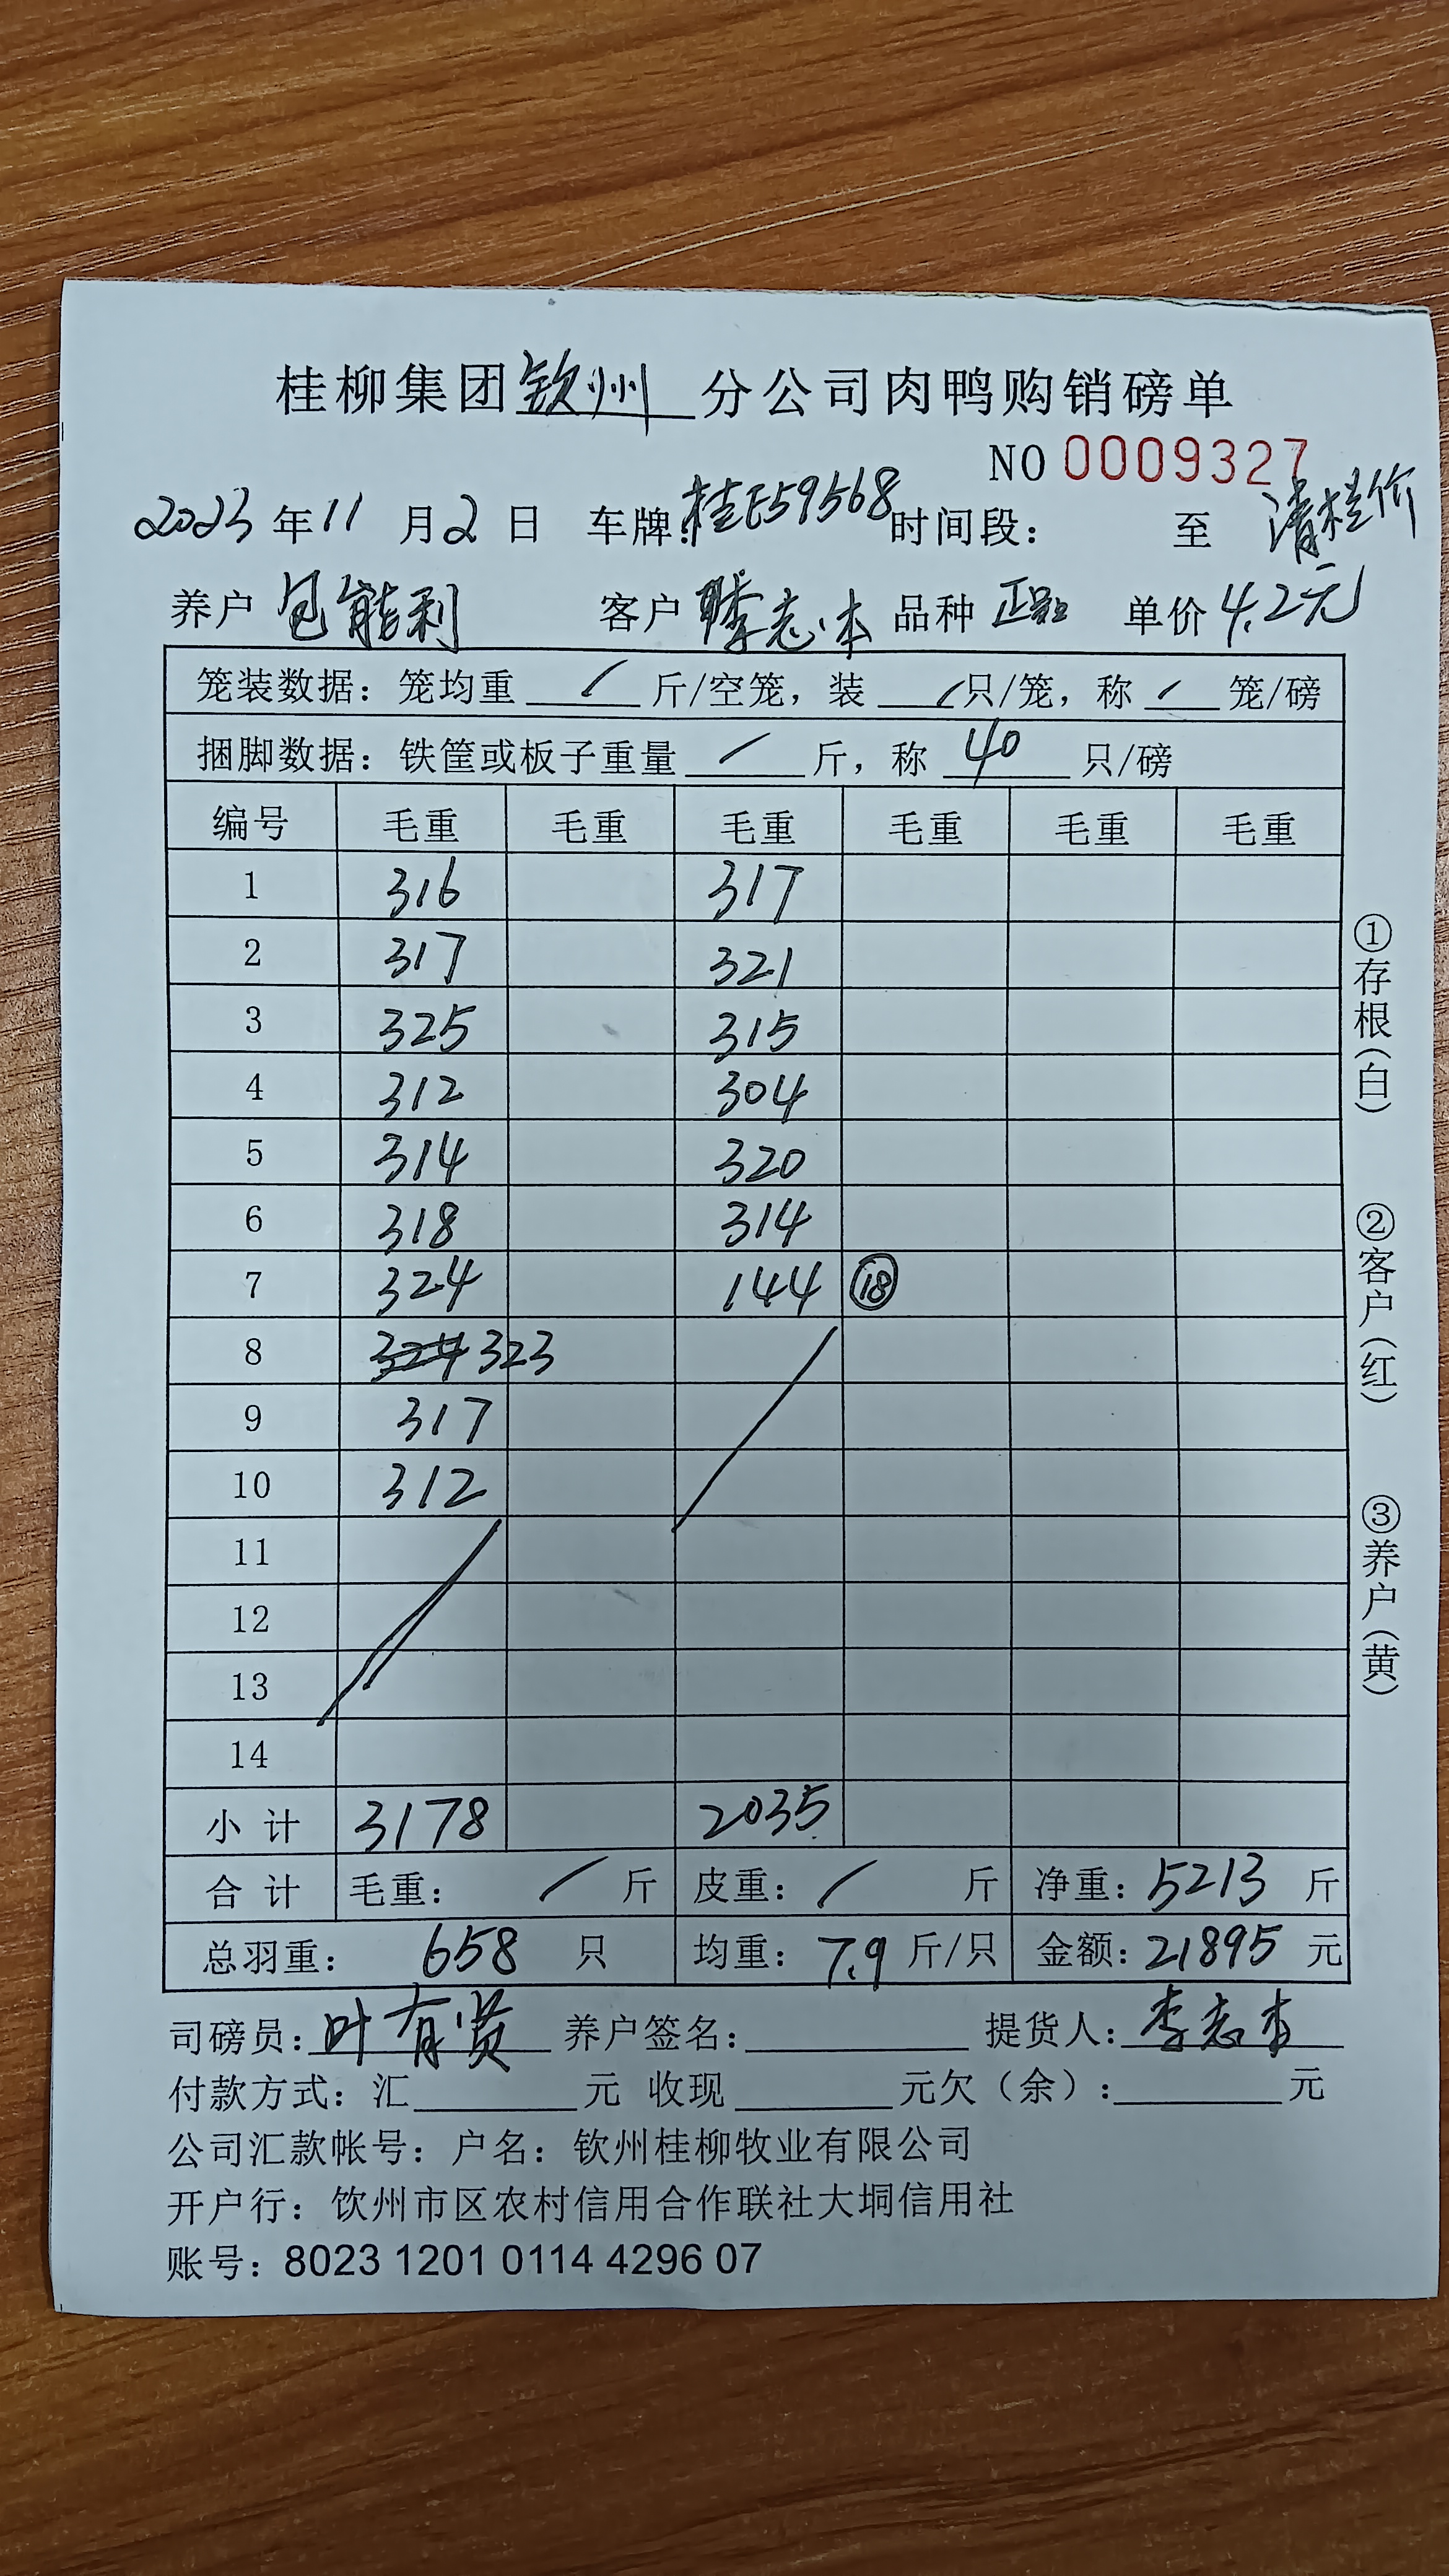 桂柳集团钦州分公司肉鸭购销磅单
NO 0009327
2023年11月2日 车牌:桂E59568 时间段: 至 清栏价
养户 包能利 客户 李志本 品种 正品 单价 4.2元
笼装数据:笼均重 / 斤/空笼,装 / 只/笼,称 / 笼/磅
捆脚数据:铁筐或板子重量 / 斤,称 40 只/磅
编号 毛重 毛重 毛重 毛重 毛重 毛重
1 316 317
2 317 321
3 325 315
4 312 304
5 314 320
6 318 314
7 324 144 ⑱
8 324 323
9 317
10 312
11
12
13
14
小计 3178 2035
合计 毛重: / 斤 皮重: / 斤 净重:5213 斤
总羽重: 658 只 均重:7.9 斤/只 金额:21895 元
司磅员:叶有贤 养户签名: 提货人:李志本
付款方式:汇 元 收现 元欠(余): 元
公司汇款帐号:户名:钦州桂柳牧业有限公司
开户行:钦州市区农村信用合作联社大垌信用社
账号:8023 1201 0114 4296 07
①存根(白)
②客户(红)
③养户(黄)